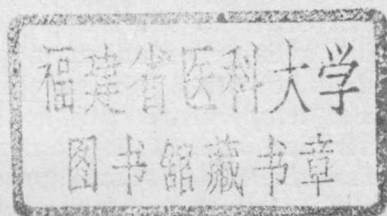 福建省医科大学
图书馆藏书章